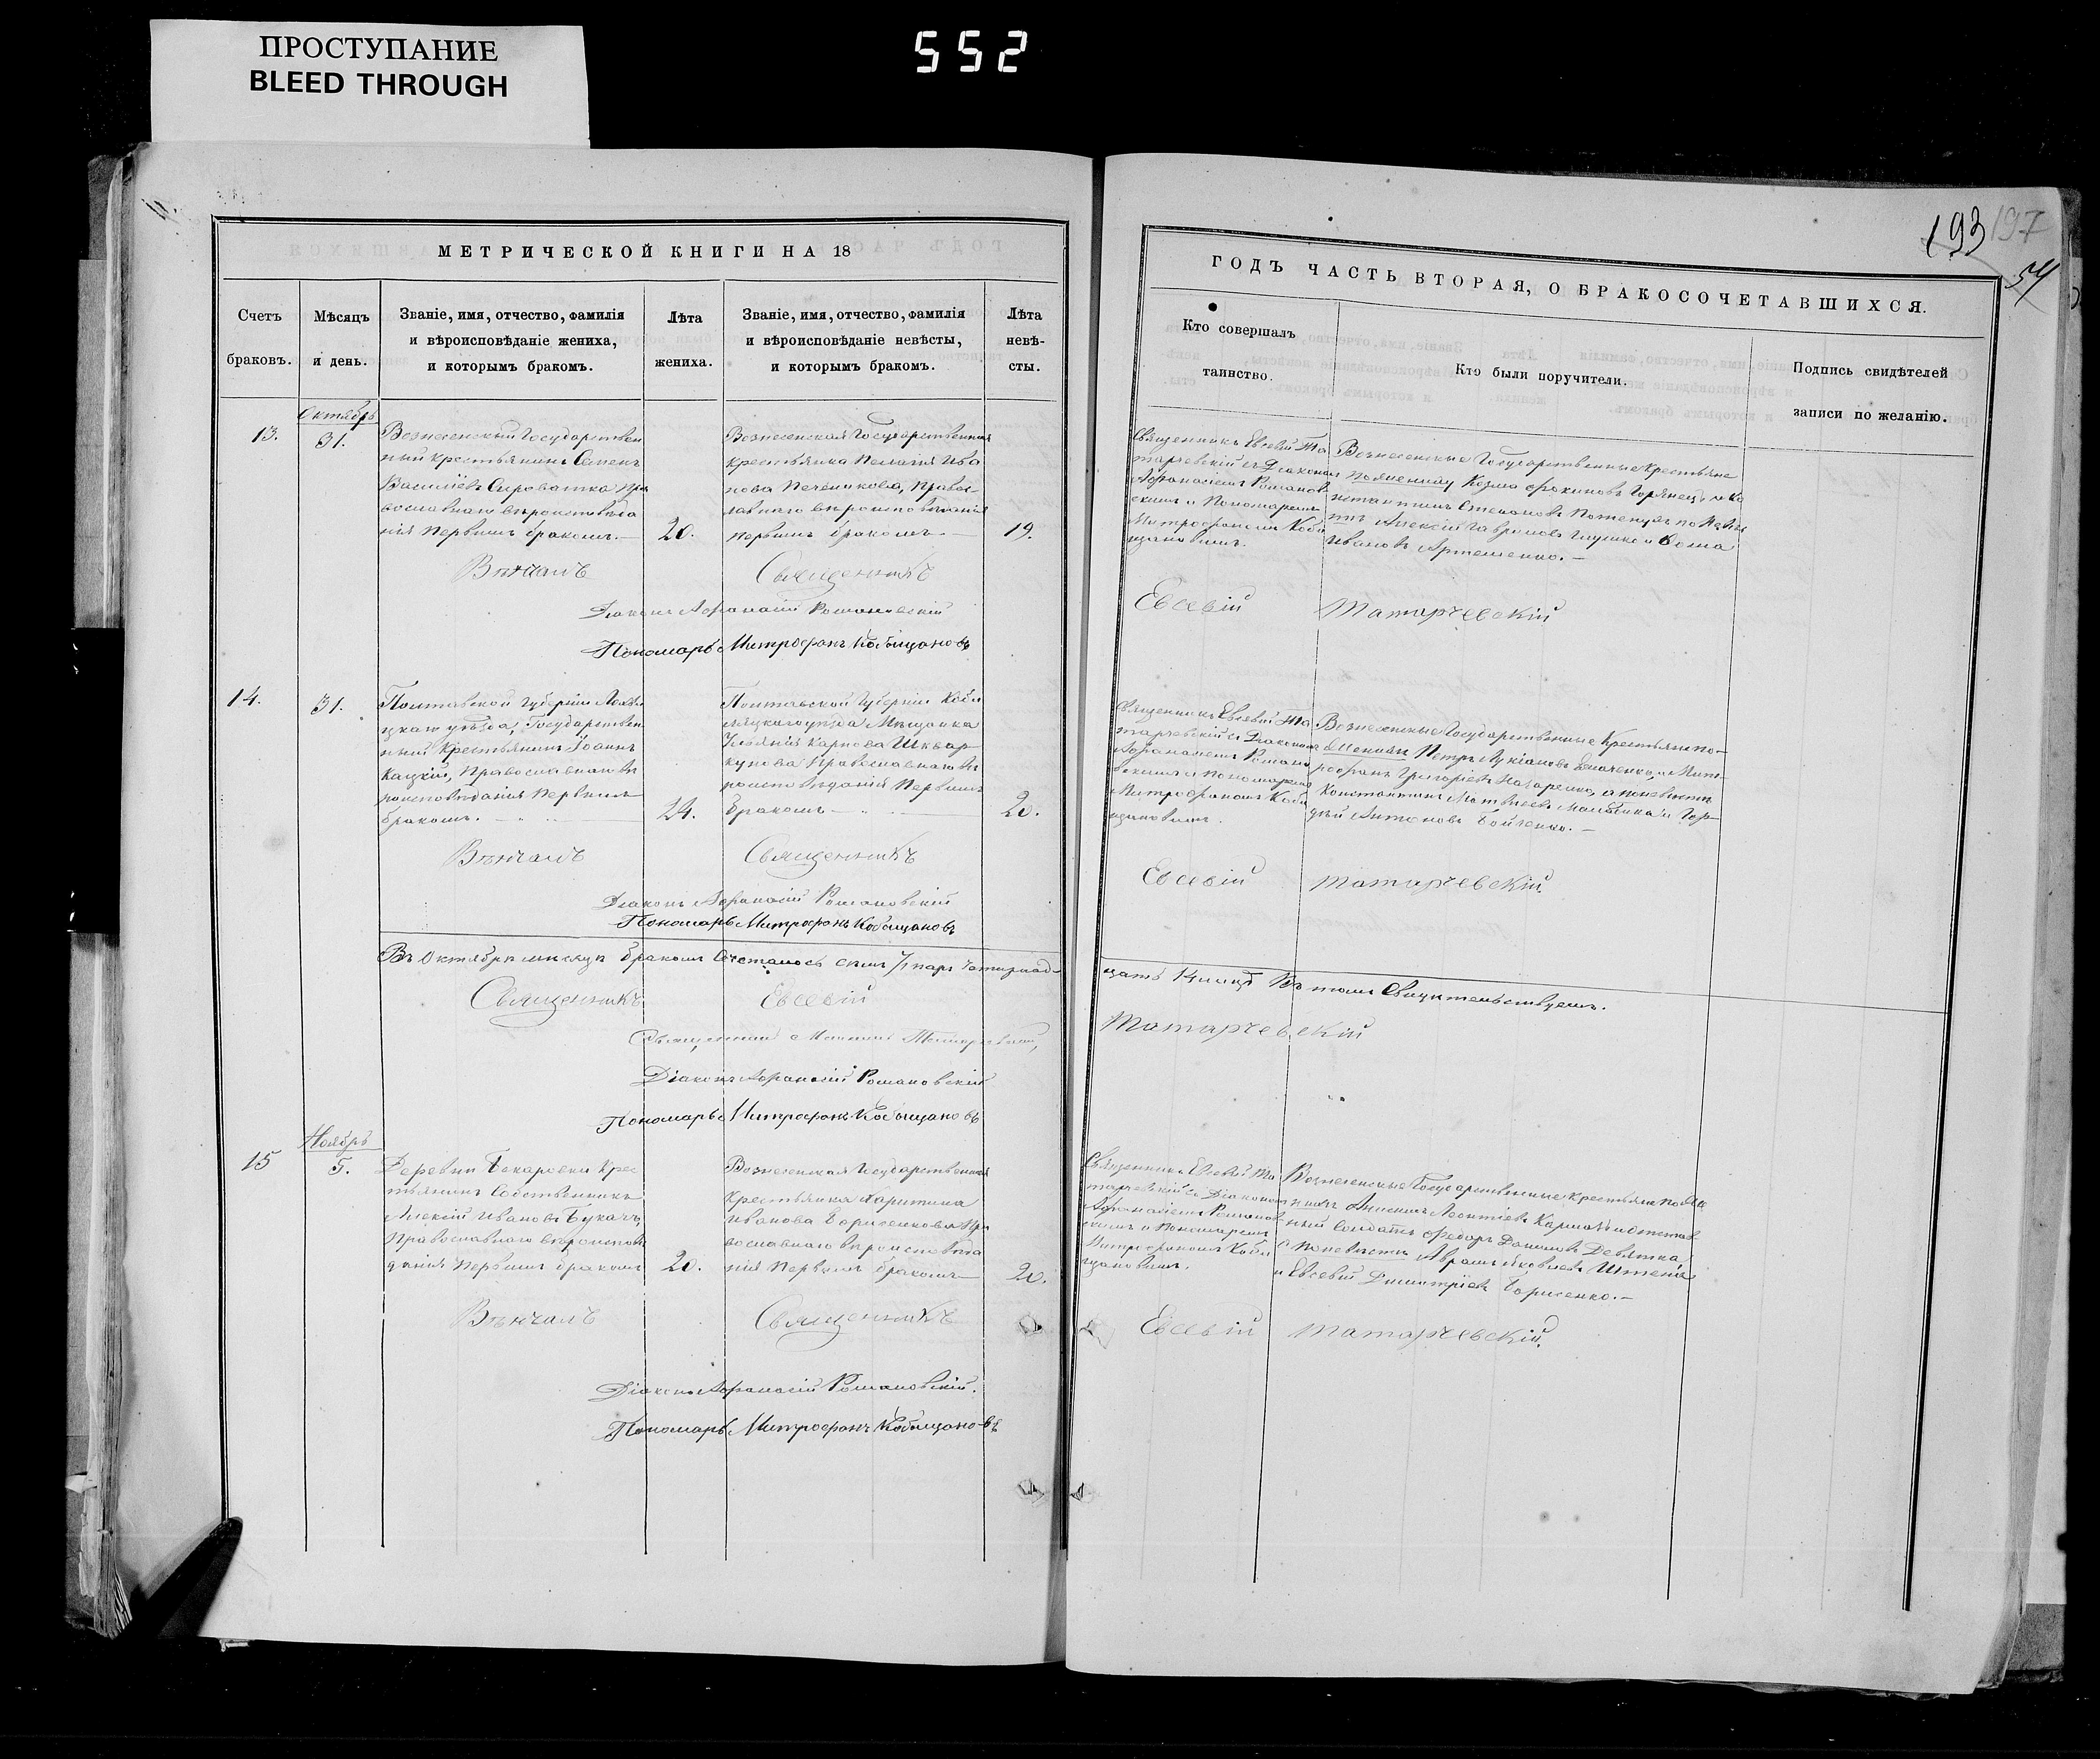 ПРОСТУПАНИЕ
BLEED THROUGH
552
193
197
54
МЕТРИЧЕСКОЙ КНИГИ НА 18
Счетъ
браковъ.
Мѣсяцъ
и день.
Званіе, имя, отчество, фамилія
и вѣроисповѣданіе жениха,
и которымъ бракомъ.
Лѣта
жениха.
Званіе, имя, отчество, фамилія
и вѣроисповѣданіе невѣсты,
и которымъ бракомъ.
Лѣта
невѣ-
сты.
ГОДЪ ЧАСТЬ ВТОРАЯ, О БРАКОСОЧЕТАВШИХСЯ.
Кто совершалъ
таинство.
Кто были поручители.
Подпись свидѣтелей
записи по желанію.
Октябрь
13.
31.
Вознесенскій Государствен
ный крестьянинъ Семенъ
Васильевъ Сыроватка пра
вославнаго вѣроисповѣда
нія первымъ бракомъ.
20.
Вознесенская Государственная
крестьянка Пелагія Ива
нова Печеникова, Право-
славнаго вѣроисповѣданія
первымъ бракомъ.
19.
Священникъ Евсевій Та
тарчевскій съ Діакономъ
Афанасіемъ Романов
скимъ и Пономаремъ
Митрофаномъ Кобы
щановымъ.
Вознесенскіе Государственные крестьяне
по женихѣ Козма
Алексѣй Гавриловъ и Фома
Ивановъ Артеменко.
Вѣнчалъ Священникъ Евсевій Татарчевскій
Діаконъ Афанасій Романовскій
Пономарь Митрофанъ Кобыщановъ
14.
31.
Полтавской Губерніи
уѣзда, Государствен
ный Крестьянинъ Іоаннъ
Кацкій, Православнаго вѣ
роисповѣданія первымъ
бракомъ.
24.
Полтавской Губерніи Кобы
ляцкаго уѣзда Мѣщанка
Карпова Шквар
кунова Православнаго вѣ
роисповѣданія первымъ
бракомъ
20.
Священникъ Евсевій Та
тарчевскій съ Діакономъ
Афанасіемъ Романо
вскимъ и пономаремъ
Митрофаномъ Кобы
щановымъ.
Вознесенскіе Государственные Крестьяне по
женихѣ Петръ Лукіановъ и Мит-
рофанъ Григорьевъ Назаренко, а по невѣстѣ
Константинъ Матвѣевъ и Гор-
дѣй Антоновъ Бойченко.
Вѣнчалъ Священникъ Евсевій Татарчевскій
Діаконъ Афанасій Романовскій
Пономарь Митрофанъ Кобыщановъ
Въ Октябрѣ мѣсяцѣ бракомъ сочеталось семь 7 паръ четырнад-
цать 14 лицъ Въ томъ Свидѣтельствуемъ.
Священникъ Евсевій Татарчевскій
Діаконъ Афанасій Романовскій
Пономарь Митрофанъ Кобыщановъ
Ноябрь
15
5.
Деревни крес
тьянинъ Собственникъ
Алексій Ивановъ Букачъ,
Православнаго вѣроиспове
данія первымъ бракомъ
20.
Вознесенская Государственная
крестьянка Харитина
Иванова Борисенкова Пра
вославнаго вѣроисповѣда
нія первымъ бракомъ
20.
Священникъ Евсевій Та
тарчевскій съ Діакономъ
Афанасіемъ Романов
скимъ и Пономаремъ
Митрофаномъ Кобы
щановымъ.
Вознесенскіе Государственные крестьяне по же
нихѣ Леонтіевъ и отстав
ный солдатъ Федоръ Девятка,
а по невѣстѣ Аврамъ Яковлевъ
и Евсевій Димитріевъ Борисенко.
Вѣнчалъ Священникъ Евсевій Татарчевскій
Діаконъ Афанасій Романовскій.
Пономарь Митрофанъ Кобыщановъ